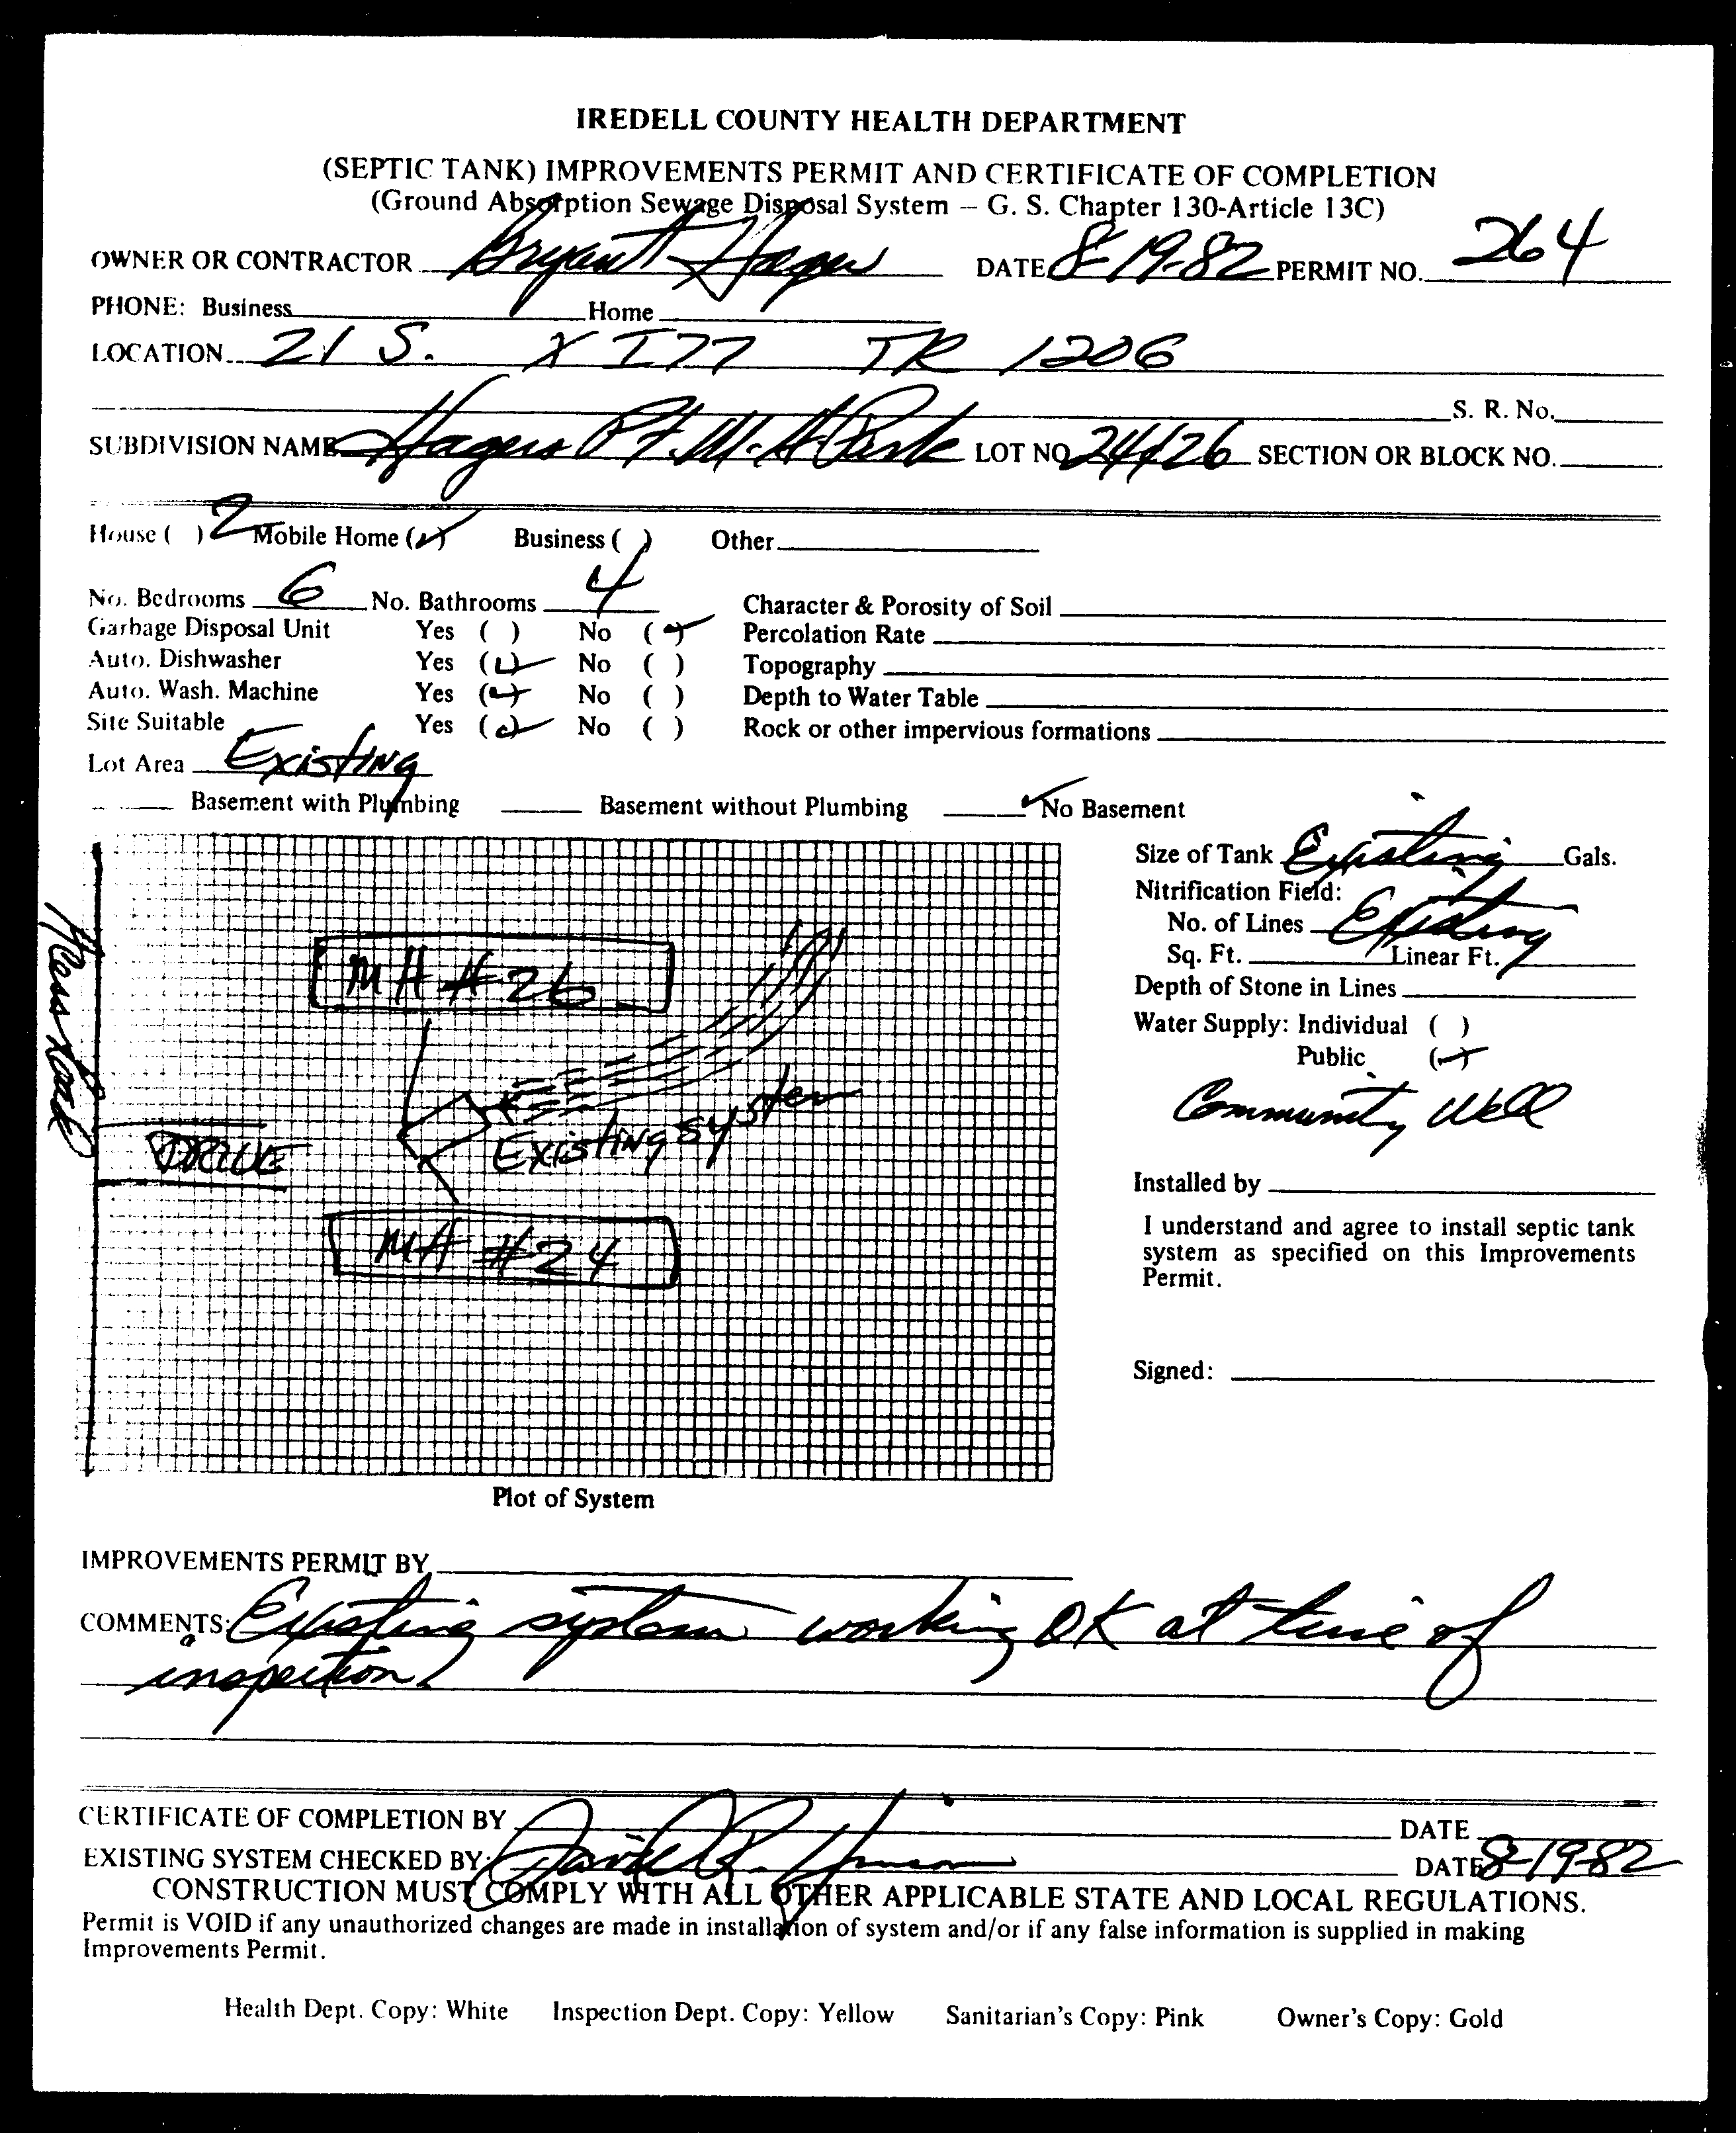 IREDELL COUNTY HEALTH DEPARTMENT
(SEPTIC TANK) IMPROVEMENTS PERMIT AND CERTIFICATE OF COMPLETION
(Ground Absorption Sewage Disposal System — G. S. Chapter 130-Article 13C)
OWNER OR CONTRACTOR Bryant Hager DATE 8-19-82 PERMIT NO. 264
PHONE: Business Home
LOCATION 21 S. X I77 TR 1206
S. R. No.
SUBDIVISION NAME Hagers Pt. M. H. Park LOT NO 24/26 SECTION OR BLOCK NO.
House ( ) 2 Mobile Home (✓) Business ( ) Other
No. Bedrooms 6 No. Bathrooms 4 Character & Porosity of Soil
Garbage Disposal Unit Yes ( ) No (✓) Percolation Rate
Auto. Dishwasher Yes (✓) No ( ) Topography
Auto. Wash. Machine Yes (✓) No ( ) Depth to Water Table
Site Suitable Yes (✓) No ( ) Rock or other impervious formations
Lot Area Existing
Basement with Plumbing Basement without Plumbing ✓ No Basement
Size of Tank Existing Gals.
Nitrification Field:
No. of Lines Existing
Sq. Ft. Linear Ft.
Depth of Stone in Lines
Water Supply: Individual ( )
Public (✓)
Community Well
Installed by
I understand and agree to install septic tank
system as specified on this Improvements
Permit.
Signed:
MH #26
Existing system
DRIVE
MH #24
Plot of System
IMPROVEMENTS PERMIT BY
COMMENTS: Existing system working OK at time of
inspection.
CERTIFICATE OF COMPLETION BY DATE
EXISTING SYSTEM CHECKED BY: DATE 8-19-82
CONSTRUCTION MUST COMPLY WITH ALL OTHER APPLICABLE STATE AND LOCAL REGULATIONS.
Permit is VOID if any unauthorized changes are made in installation of system and/or if any false information is supplied in making
Improvements Permit.
Health Dept. Copy: White Inspection Dept. Copy: Yellow Sanitarian's Copy: Pink Owner's Copy: Gold